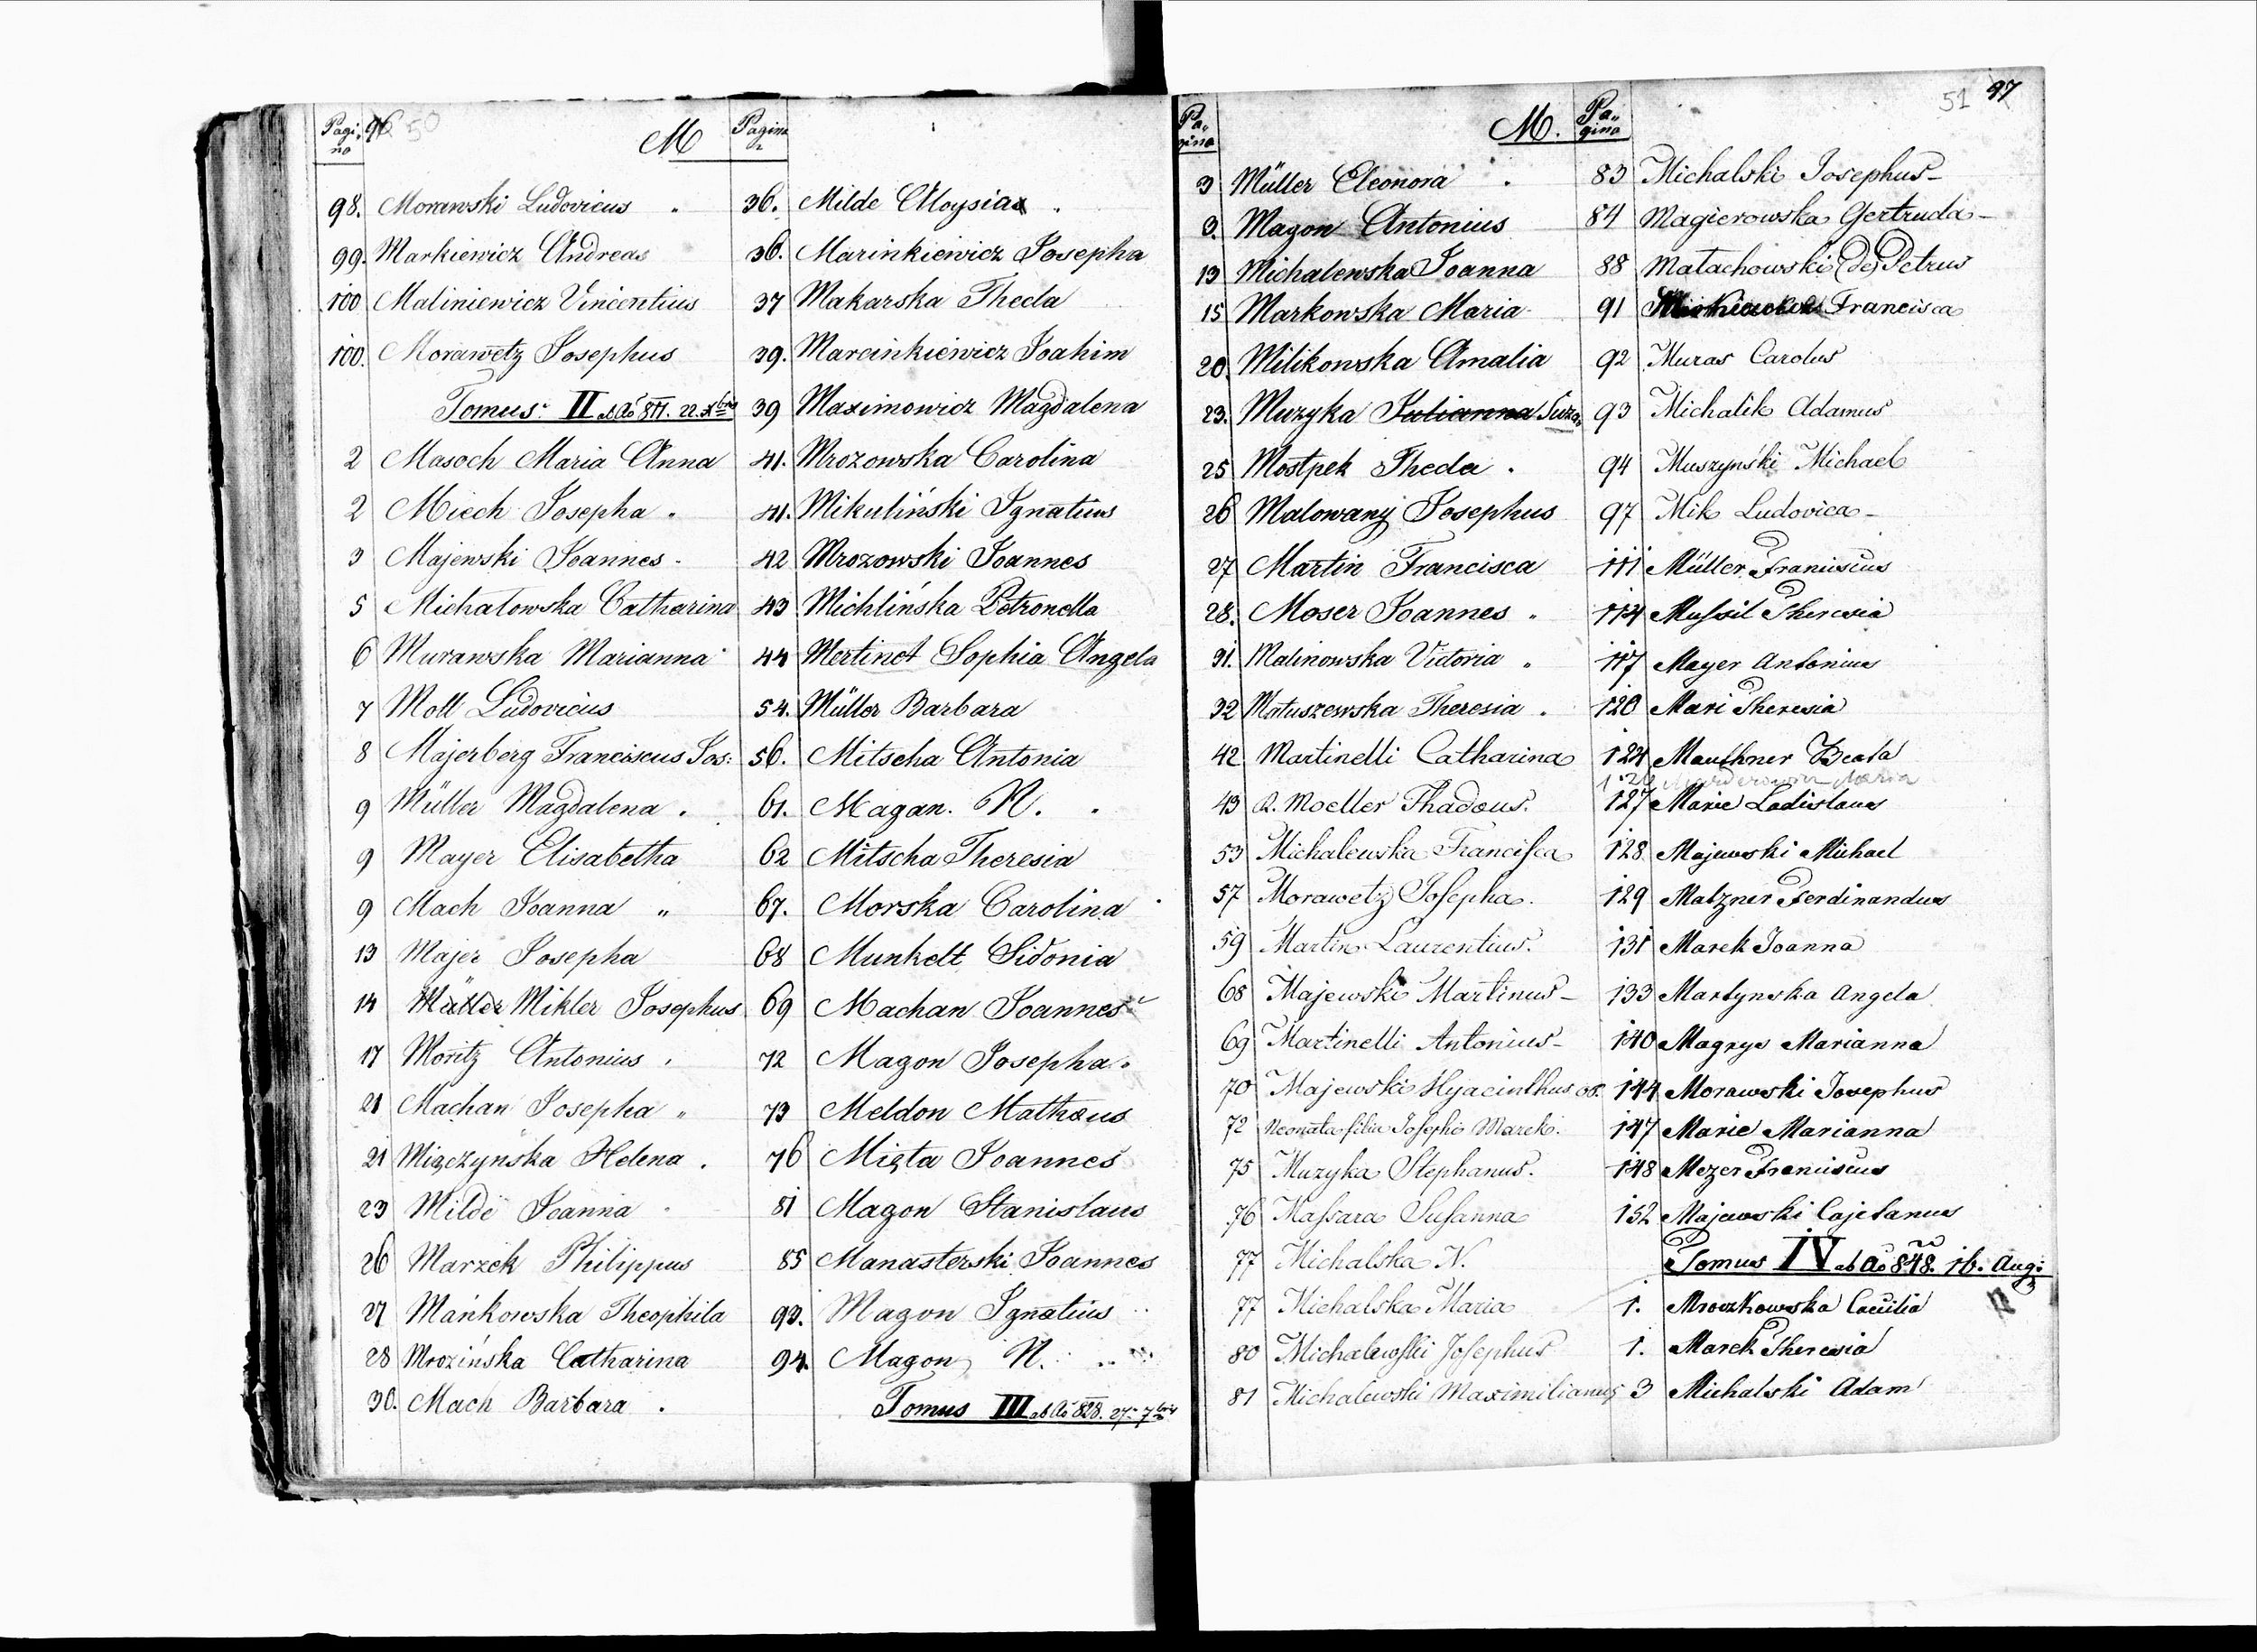 Pagi-
na
96 50
M
98. Morawski Ludovicus
99. Markiewicz Andreas
100 Maliniewicz Vincentius
100. Morawetz Josephus
Tomus II ab Ao 811. 22. Xbris
2 Masoch Maria Anna
2 Miech Josepha
3 Majewski Joannes
5 Michałowska Catharina
6 Murawska Marianna
7 Moll Ludovicus
8 Majerberg Franciscus Jos:
9 Müller Magdalena
9 Mayer Elisabetha
9 Mach Joanna
13 Majer Josepha
14 Müller Mikler Josephus
17 Moritz Antonius
21 Machan Josepha
21 Miączyńska Helena
23 Milde Joanna
26 Marzek Philippus
27 Mańkowska Theophila
28 Mrozińska Catharina
30. Mach Barbara
Pagina
36. Milde Aloysia
36. Marinkiewicz Josepha
37 Makarska Thecla
39. Marcinkiewicz Joahim
39 Maximowicz Magdalena
41. Mrozowska Carolina
41. Mikuliński Ignatius
42 Mrozowski Joannes
43 Michlińska Petronella
44 Mertinet Sophia Angela
54. Müller Barbara
56. Mitscha Antonia
61. Magan. N.
62 Mitscha Theresia
67. Morska Carolina
68 Munkelt Sidonia
69 Machan Joannes
72 Magon Josepha
73 Meldon Mathæus
76 Mięta Joannes
81 Magon Stanislaus
85 Manasterski Joannes
93. Magon Ignatius
94. Magon N.
Tomus III ab Ao 828. 27. 7bris
Pa-
gina
M.
3 Müller Eleonora
3. Magon Antonius
13 Michalewska Joanna
15 Markowska Maria
20. Milikowska Amalia
23. Muzyka Julianna Suza
25 Mostpek Thecla
26 Malowany Josephus
27 Martin Francisca
28. Moser Joannes
31. Malinowska Victoria
32 Matuszewska Theresia
42 Martinelli Catharina
43 R. Moeller Thadæus.
53 Michalewska Francisca
57 Morawetz Josepha
59 Martin Laurentius.
68 Majewski Martinus
69 Martinelli Antonius
70 Majewski Hyacinthus
72 Neonata filia Josephi Marek.
75 Muzyka Stephanus.
76 Massara Susanna
77 Michalska N.
77 Michalska Maria
80 Michalewski Josephus
81 Michalewski Maximilianus
Pa-
gina
51 97
83 Michalski Josephus
84 Magierowska Gertruda
88 Małachowski (de) Petrus
91 Francisca
92 Muras Carolus
93 Michalik Adamus
94 Muszyński Michael
97 Mik Ludovica
111 Müller Franciscus
114 Mussil Theresia
117 Mayer Antonius
120 Mari Theresia
124 Mauthner Beata
Maria
127 Marie Ladislaus
128 Majewski Michael
129 Matzner Ferdinandus
131 Marek Joanna
133 Martynska Angela
140 Magrys Marianna
144 Morawski Josephus
147 Marie Marianna
148 Mezer Franciscus
152 Majewski Cajetanus
Tomus IV ab Ao 848. 16. Aug:
1. Mroczkowska Caecilia
1. Marek Theresia
3 Michalski Adam